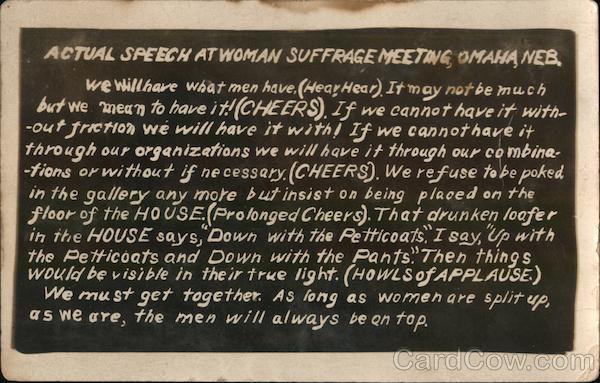 ACTUAL SPEECH AT WOMAN SUFFRAGE MEETING, OMAHA, NEB.
We will have what men have. (Hear, Hear). It may not be much
but we mean to have it! (CHEERS). If we cannot have it with-
-out friction we will have it with! If we cannot have it
through our organizations we will have it through our combina-
-tions or without if necessary. (CHEERS). We refuse to be poked
in the gallery any more but insist on being placed on the
floor of the HOUSE. (Prolonged Cheers). That drunken loafer
in the HOUSE says, "Down with the Petticoats," I say, "Up with
the Petticoats and Down with the Pants." Then things
would be visible in their true light. (HOWLS of APPLAUSE.)
We must get together. As long as women are split up,
as we are, the men will always be on top.
CardCow.com